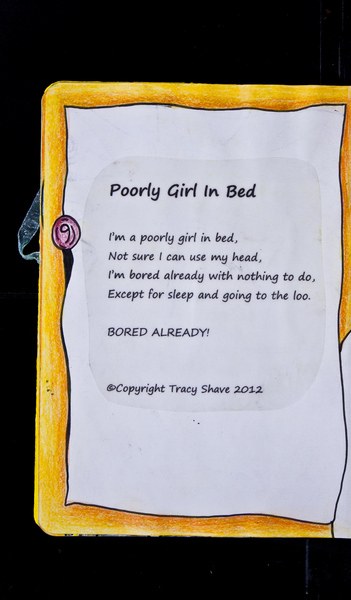 Poorly Girl In Bed
I'm a poorly girl in bed,
Not sure I can use my head,
I'm bored already with nothing to do,
Except for sleep and going to the loo.
BORED ALREADY!
©Copyright Tracy Shave 2012
9